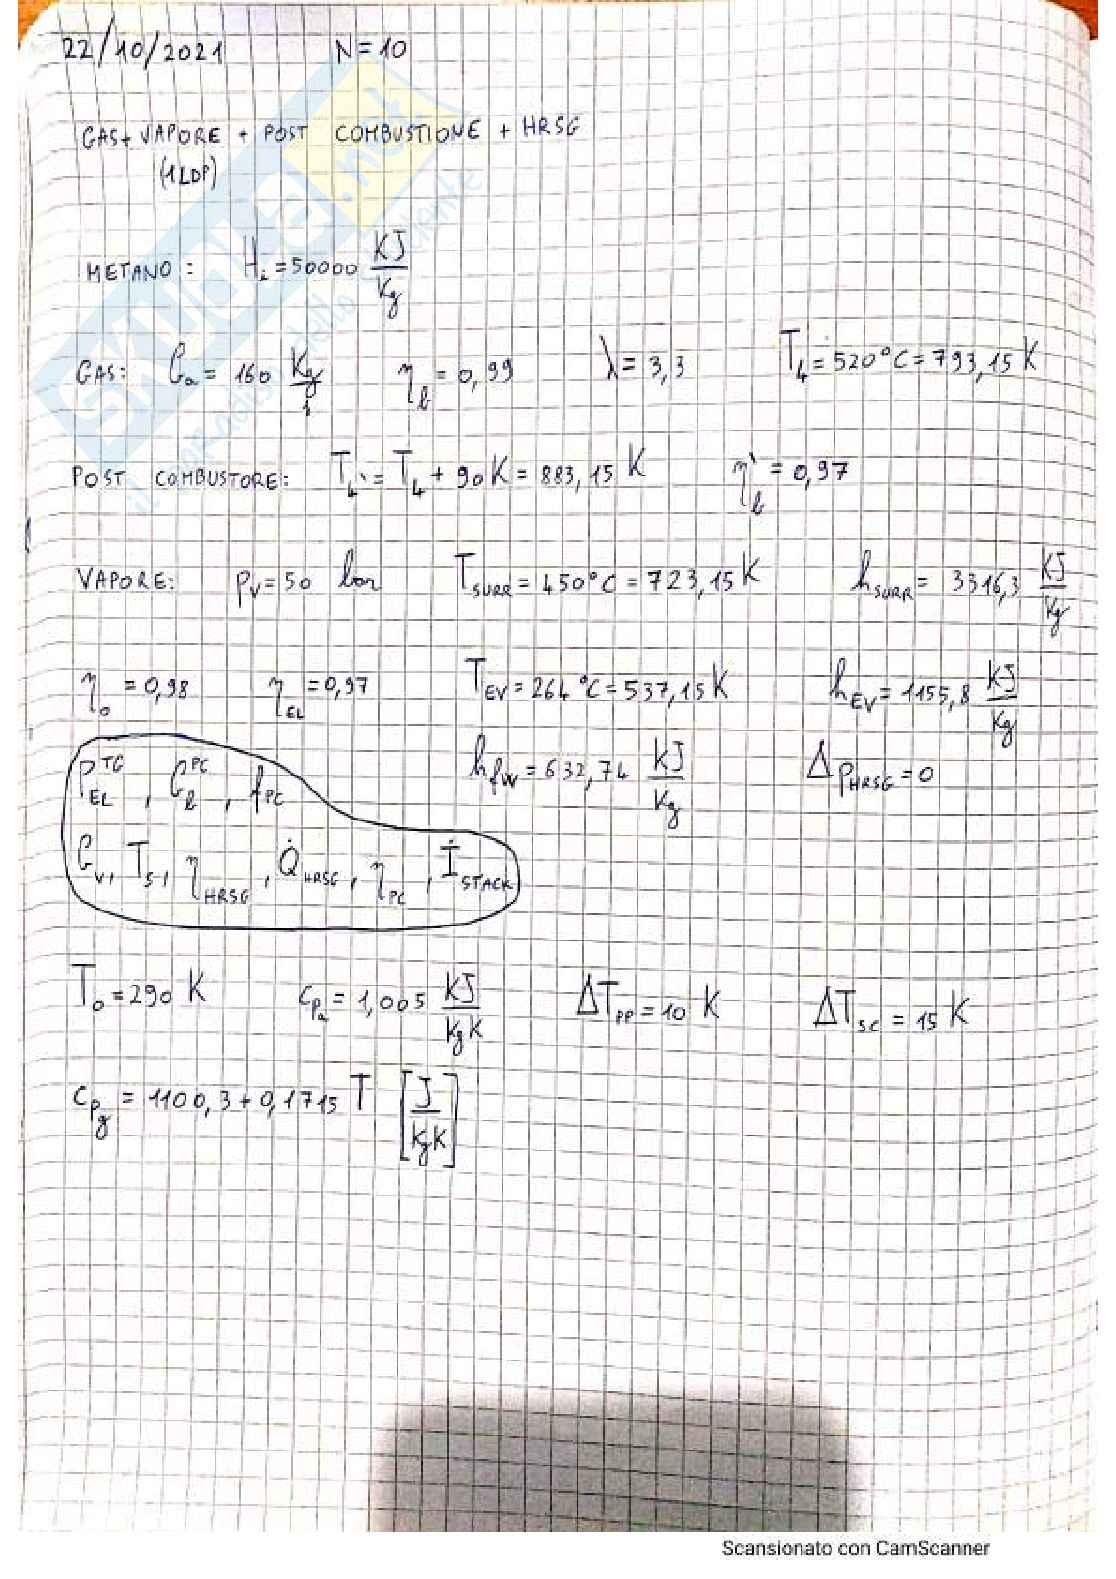 22/10/2021 N=10
GAS + VAPORE + POST COMBUSTIONE + HRSG
(1LDP)
METANO: Hi = 50000 KJ/Kg
GAS: Ga = 160 Kg/s ηb = 0,99 λ = 3,3 T4 = 520°C = 793,15 K
POST COMBUSTORE: T4' = T4 + 90 K = 883,15 K ηb' = 0,97
VAPORE: pv = 50 bar TSURR = 450°C = 723,15 K hSURR = 3316,3 KJ/Kg
ηo = 0,98 ηEL = 0,97 TEV = 264°C = 537,15 K hEV = 1155,8 KJ/Kg
PEL^TG, Gb^PC, fPC hfW = 632,74 KJ/Kg ΔpHRSG = 0
Gv, T5, ηHRSG, Q̇HRSG, ηPC, İSTACK
To = 290 K cpa = 1,005 KJ/KgK ΔTPP = 10 K ΔTsc = 15 K
cpg = 1100,3 + 0,1715 T [J/KgK]
skuola.net
il paradiso dello studente
Scansionato con CamScanner